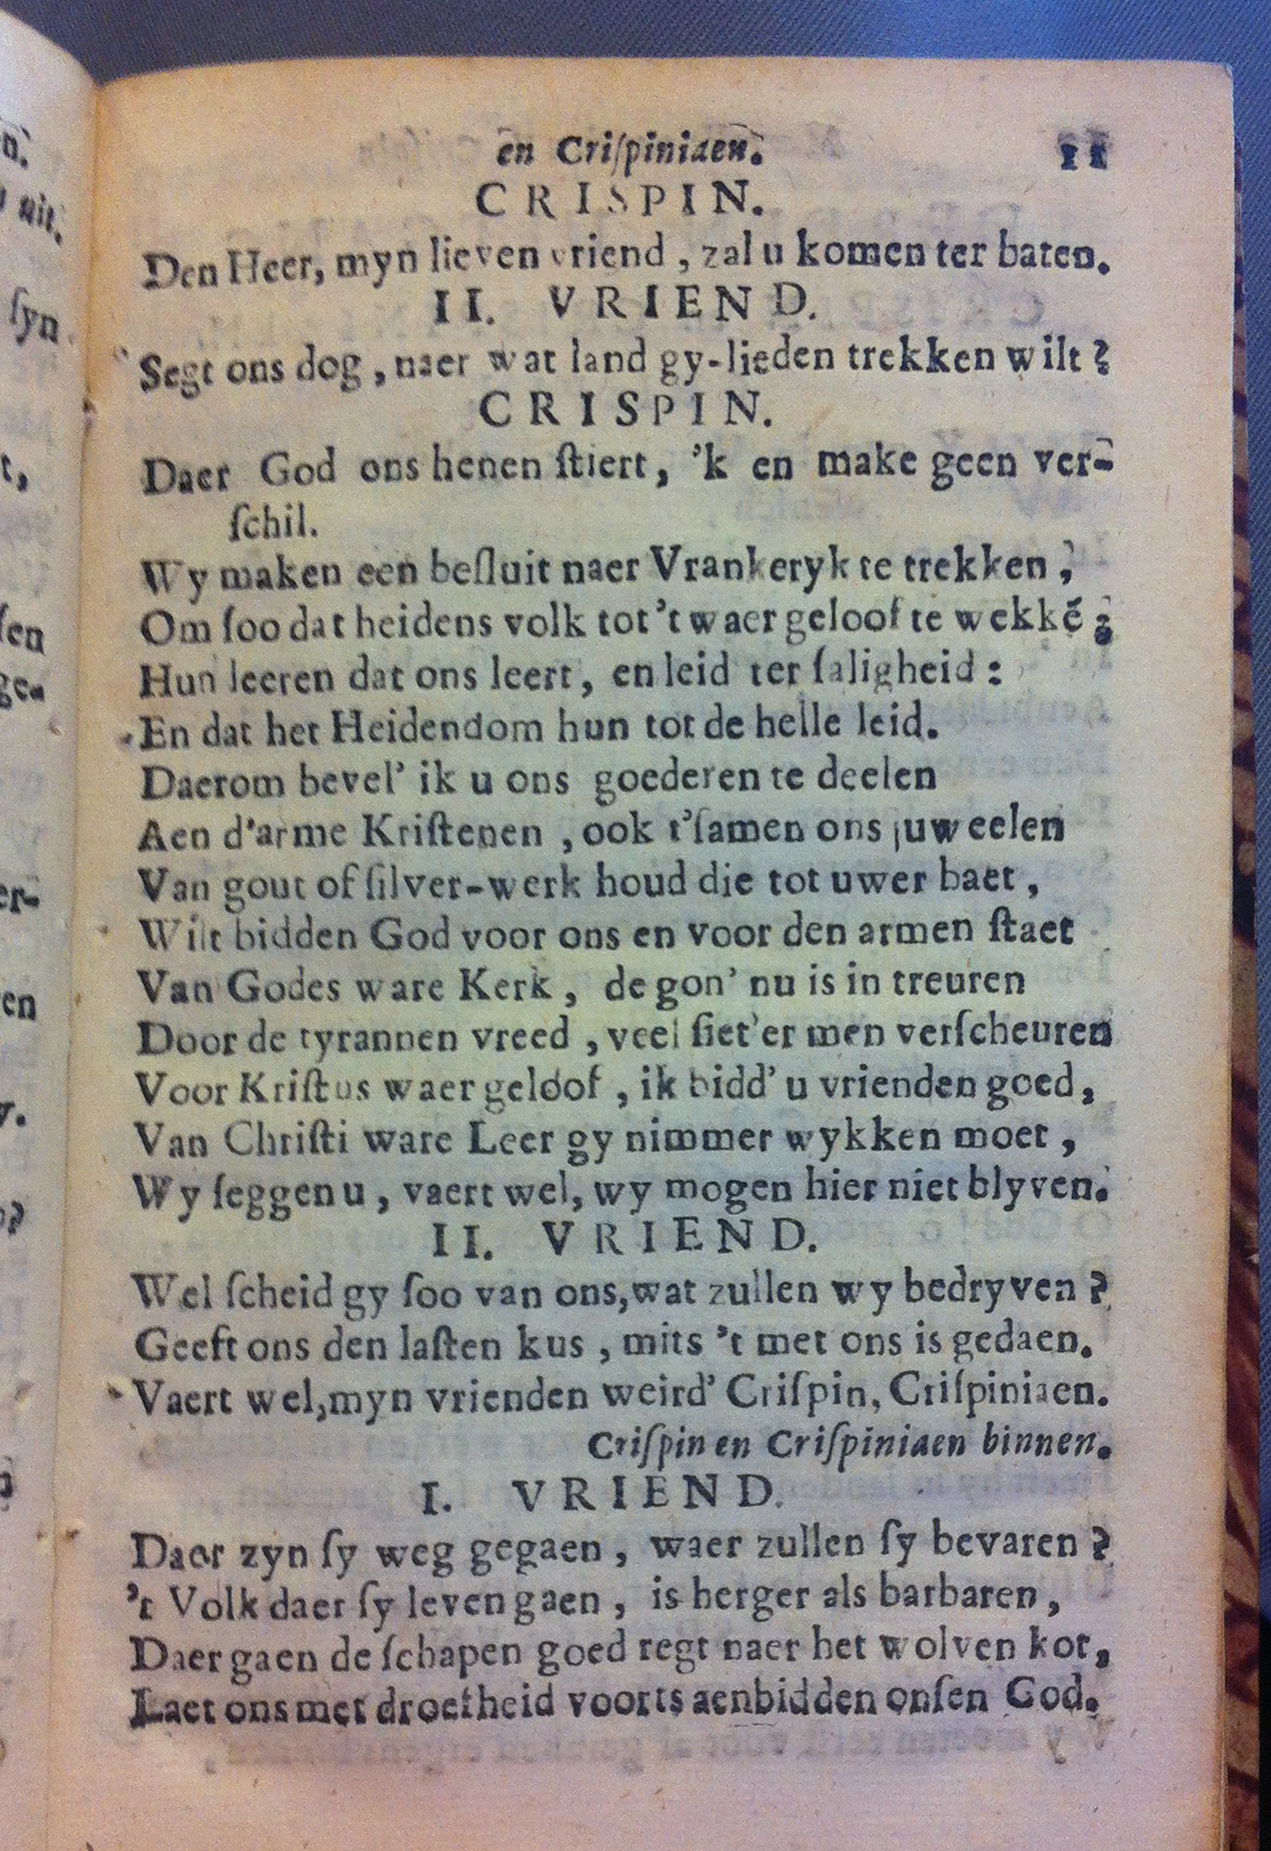 en Criſpiniaen. 11
CRISPIN.
Den Heer, myn lieven vriend, zal u komen ter baten.
II. VRIEND.
Segt ons dog, naer wat land gy-lieden trekken wilt?
CRISPIN.
Daer God ons henen ſtiert, 'k en make geen ver-
ſchil.
Wy maken een beſluit naer Vrankeryk te trekken,
Om ſoo dat heidens volk tot 't waer geloof te wekkē;
Hun leeren dat ons leert, en leid ter ſaligheid:
En dat het Heidendom hun tot de helle leid.
Daerom bevel' ik u ons goederen te deelen
Aen d'arme Kriſtenen, ook t'ſamen ons juweelen
Van gout of ſilver-werk houd die tot uwer baet,
Wilt bidden God voor ons en voor den armen ſtaet
Van Godes ware Kerk, de gon' nu is in treuren
Door de tyrannen vreed, veel ſiet'er men verſcheuren
Voor Kriſtus waer geloof, ik bidd' u vrienden goed,
Van Chriſti ware Leer gy nimmer wykken moet,
Wy ſeggen u, vaert wel, wy mogen hier niet blyven.
II. VRIEND.
Wel ſcheid gy ſoo van ons, wat zullen wy bedryven?
Geeft ons den laſten kus, mits 't met ons is gedaen.
Vaert wel, myn vrienden weird' Criſpin, Criſpiniaen.
Criſpin en Criſpiniaen binnen.
I. VRIEND.
Daer zyn ſy weg gegaen, waer zullen ſy bevaren?
't Volk daer ſy leven gaen, is herger als barbaren,
Daer gaen de ſchapen goed regt naer het wolven kot,
Laet ons met droefheid voorts aenbidden onſen God.